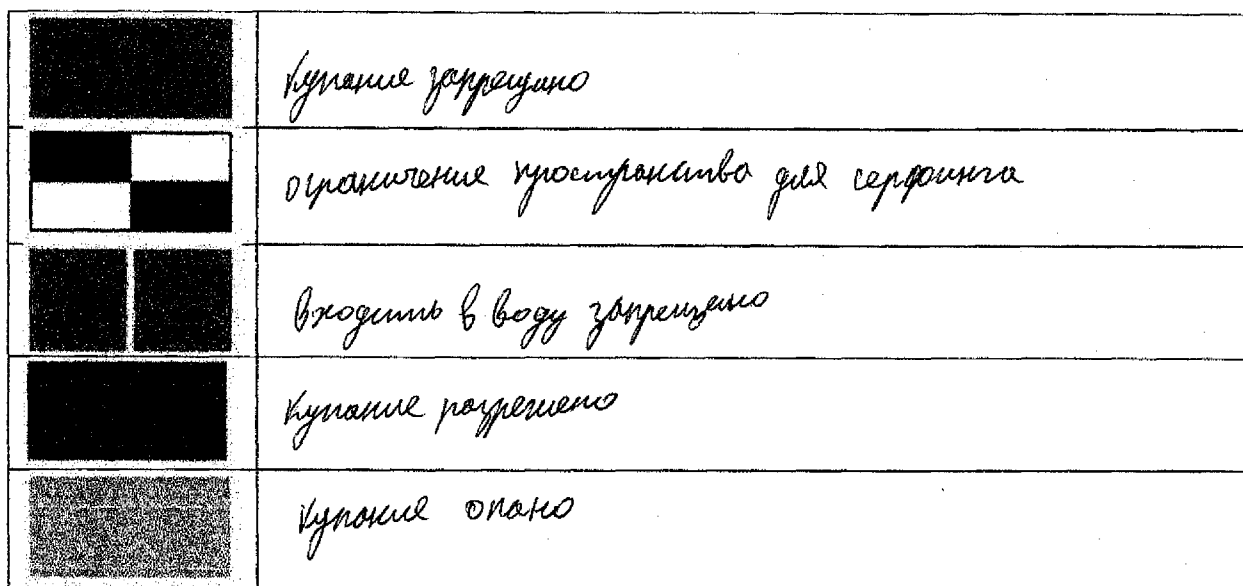 Купание запрещено
ограничение пространства для серфинга
Входить в воду запрещено
Купание разрешено
Купание опано